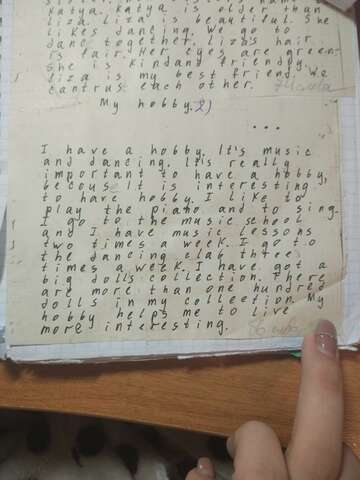 katya. Katya is older than
liza. Liza is beautiful. She
likes dancing. We go to
dance together. Liza's hair
is fair. Her eyes are green.
She is kind and friendly.
Liza is my best friend. We
can trus each other.
My hobby. 2)
...
I have a hobby. It's music
and dancing. It's really
important to have a hobby,
becous it is interesting
to have hobby. I like to
play the piano and to sing.
I go to the music school
and I have music lessons
two times a week. I go to
the dancing clab three
times a week. I have got a
big dolls collection. There
are more than one hundred
dolls in my collection. My
hobby helps me to live
more interesting.